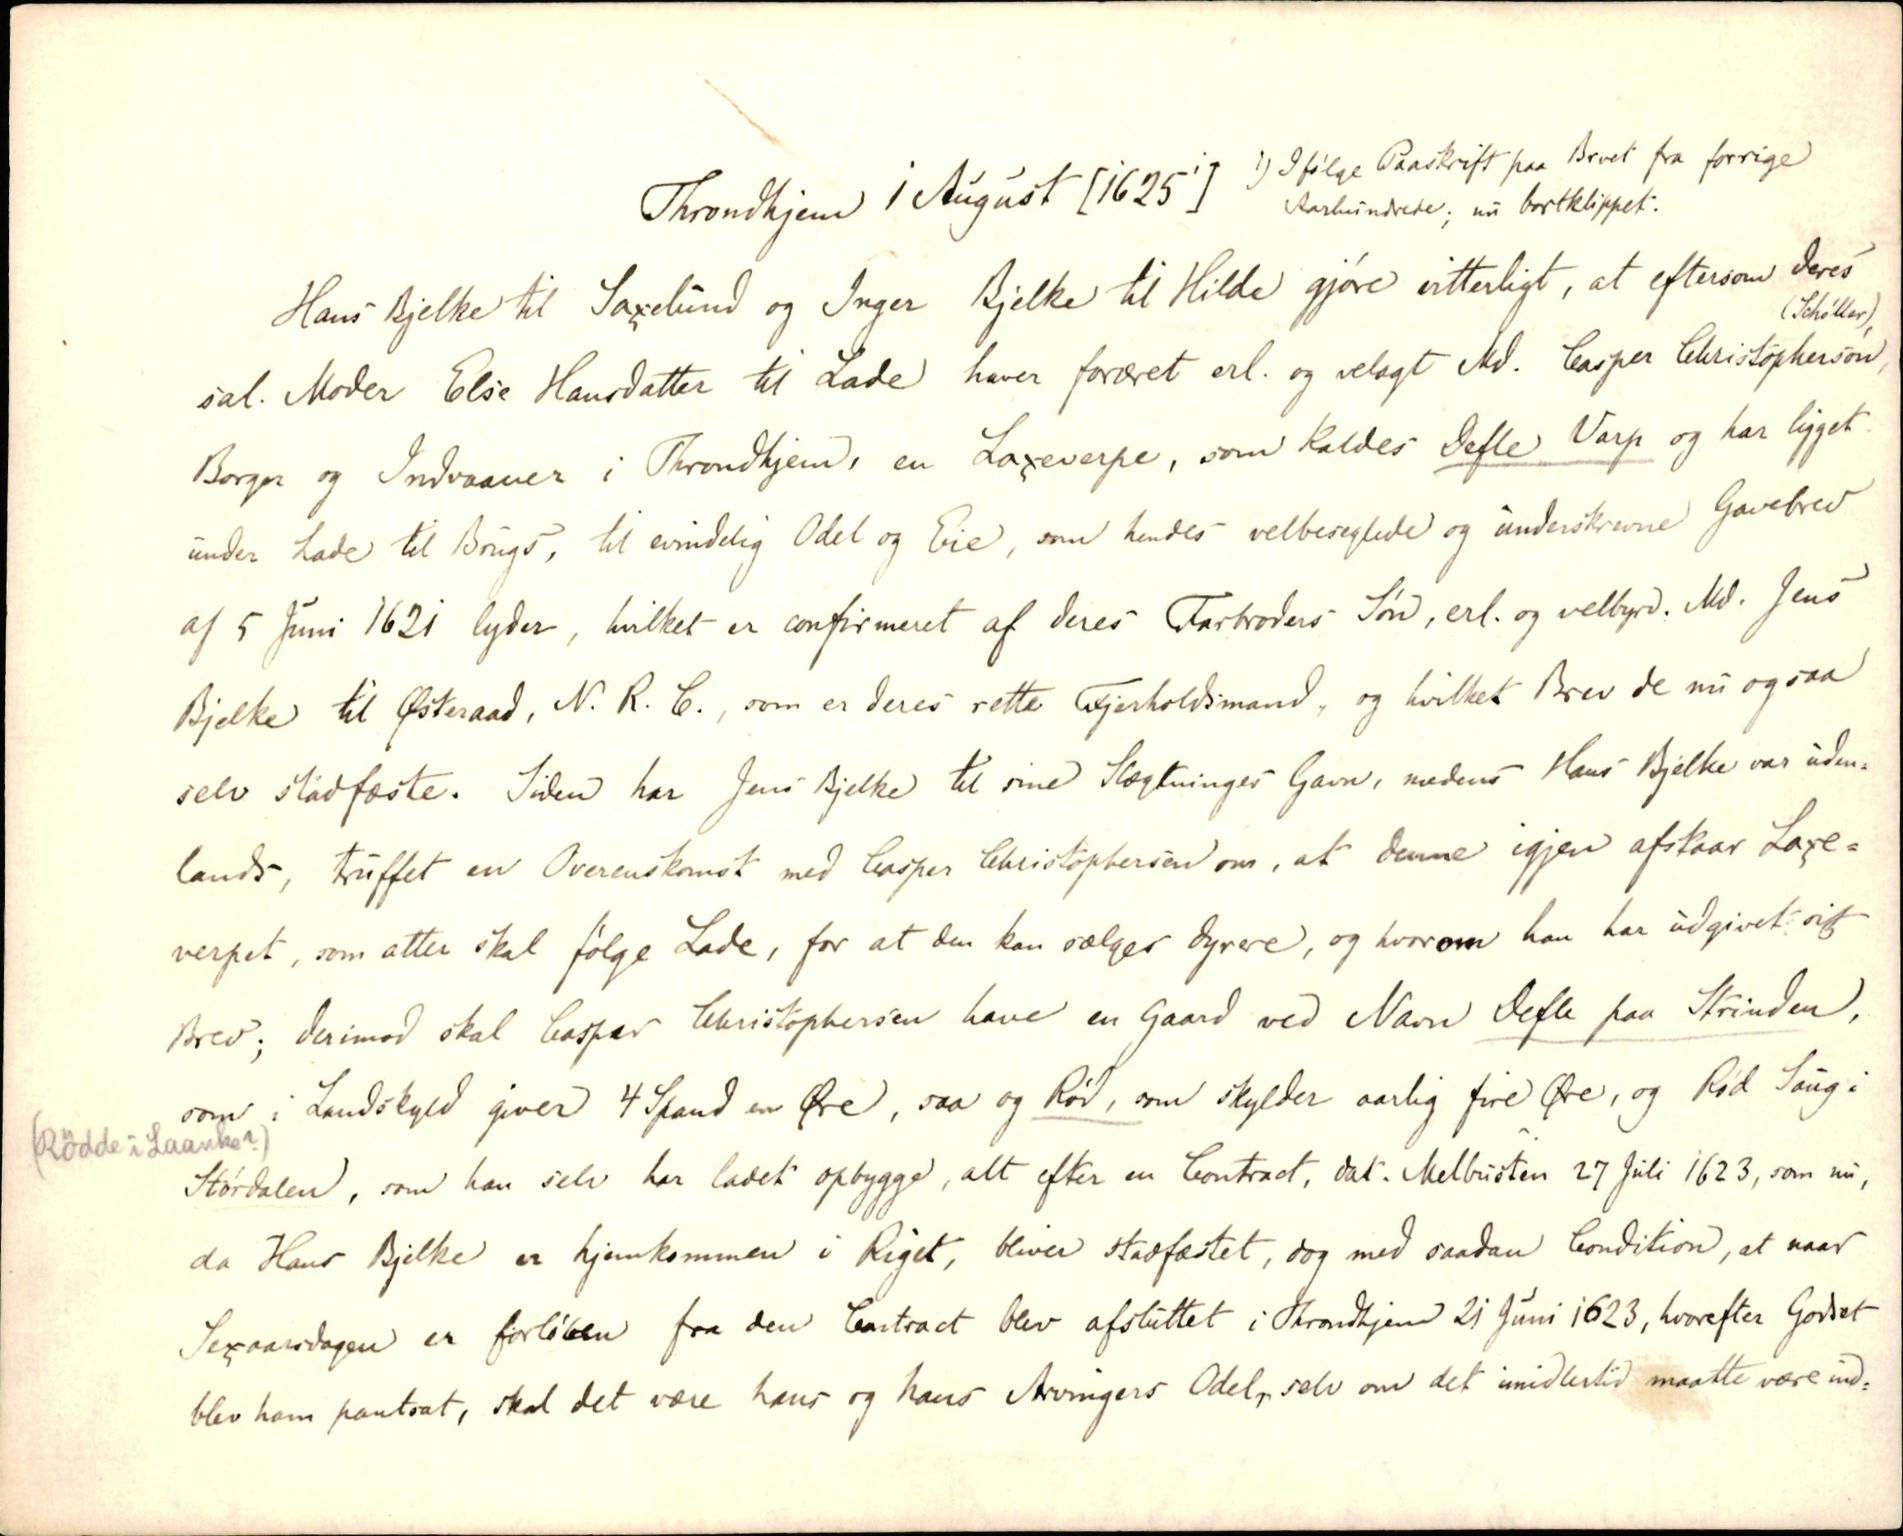 Throndhjem 1 August [1625¹] ¹) Ifølge Paaskrift paa Brvet fra forrige
Aarhundrede; nu bortklippet.
Hans Bjelke til Saxelund og Inger Bjelke til Hilde gjøre vitterligt, at eftersom deres
(Schøller),
sal. Moder Else Hansdatter til Lade haver foræret erl. og velagt Md. Casper Christophersøn,
Borger og Indvaaner i Throndhjem, en Laxeverpe, som kaldes Defle Varp og har ligget
under Lade til Brugs, til evindelig Odel og Eie, som hendes velbeseglede og underskrevne Gavebrev
af 5 Juni 1621 lyder, hvilket er confirmeret af deres Farbroders Søn, erl. og velbyrd. Md. Jens
Bjelke til Østeraad, N. R. C., som er deres rette Fjerholdsmand, og hvilket Brev de nu ogsaa
selv stadfæste. Siden har Jens Bjelke til sine Slægtninges Gavn, medens Hans Bjelke var uden-
lands, truffet en Overenskomst med Casper Christophersen om, at denne igjen afstaar Laxe-
verpet, som atter skal følge Lade, for at den kan sælges dyrere, og hvorom han har udgivet sit
Brev; derimod skal Caspar Christophersen have en Gaard ved Navn Defle paa Strinden,
som i Landskyld giver 4 Spand en Øre, saa og Rød, som skylder aarlig fire Øre, og Rød Saug i
(Rödde i Laanke?)
Størdalen, som han selv har ladet opbygge, alt efter en Contract, dat. Melhusten 27 Juli 1623, som nu,
da Hans Bjelke er hjemkommen i Riget, bliver stadfæstet, dog med saadan Condition, at naar
Sexaarsdagen er forløben fra den Contract blev afsluttet i Throndhjem 21 Juni 1623, hvorefter Godset
blev ham pantsat, skal det være hans og hans Arvingers Odel, selv om det imidlertid maatte være ind-